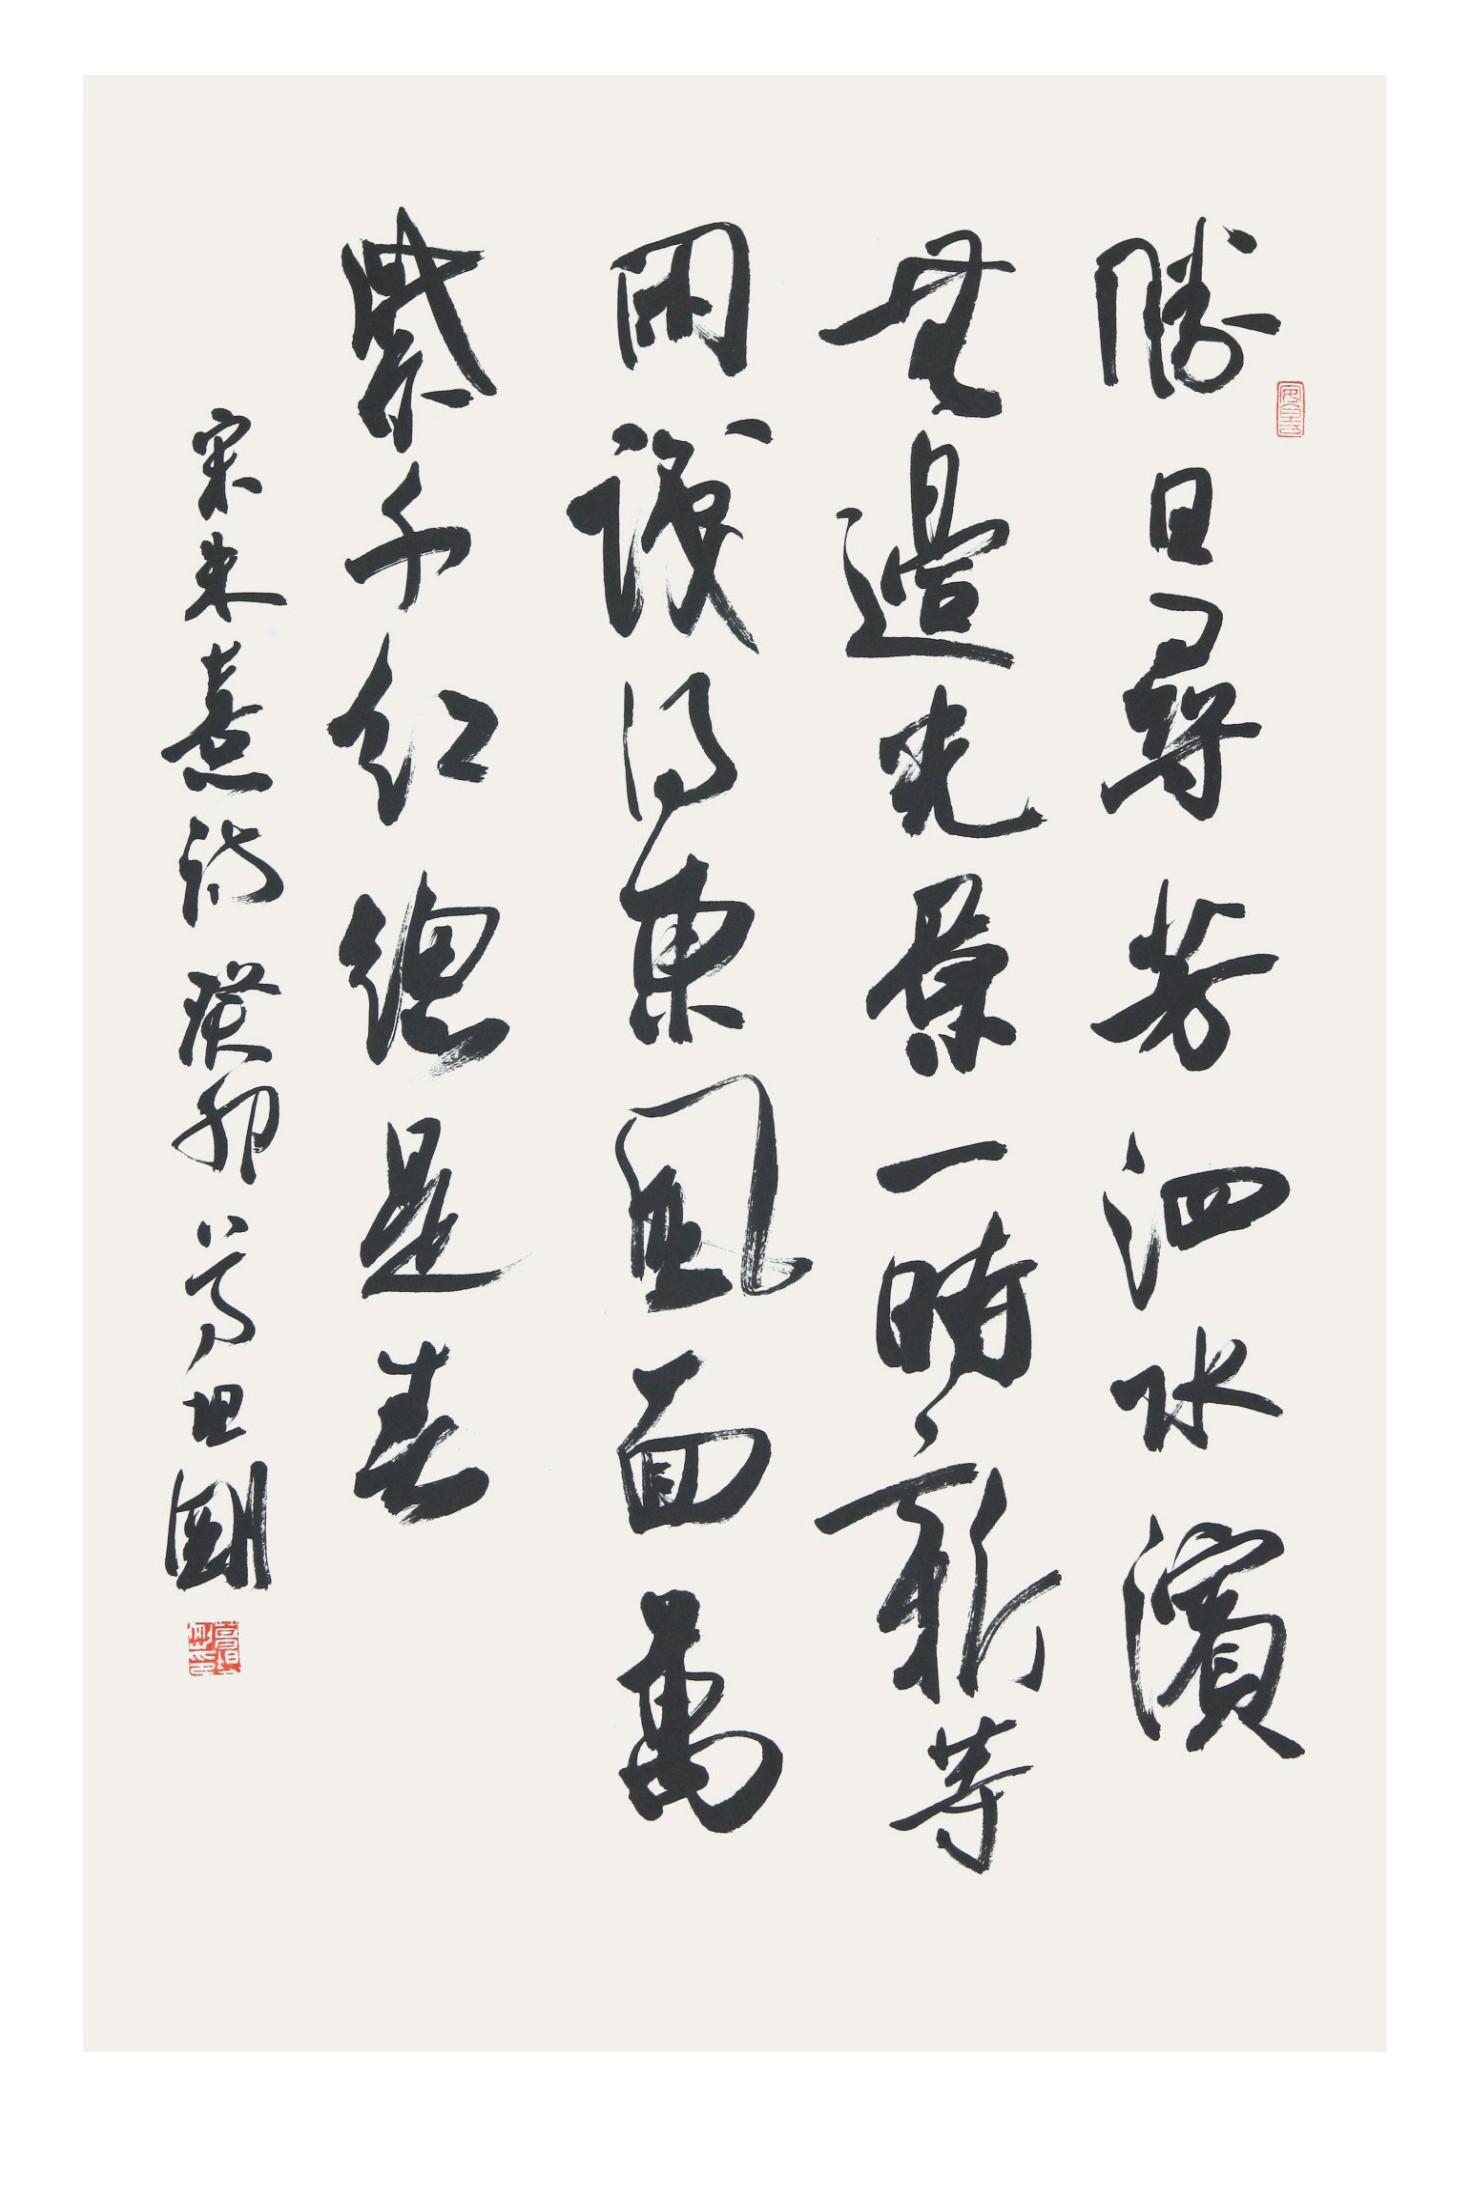 勝日尋芳泗水濱
無邊光景一時新等
閑識得東風面萬
紫千紅總是春
宋朱熹詩癸卯